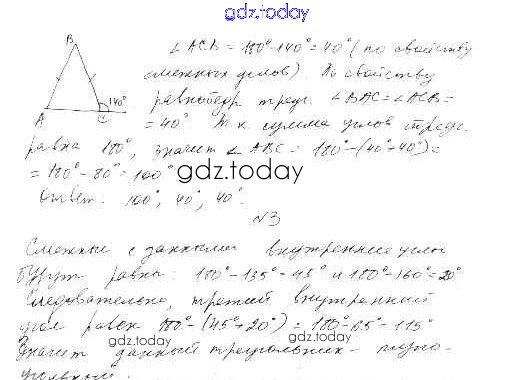 gdz.today
B
140°
A
C
∠ACB = 180° - 140° = 40° (по свойству
смежных углов). По свойству
равнобедр треуг. ∠BAC = ∠ACB =
= 40° Т.к. сумма углов треуг.
равна 180°, значит ∠ABC = 180° - (40° + 40°) =
= 180° - 80° = 100°
gdz.today
Ответ. 100°, 40°, 40°.
№3
Смежные с данными внутренние углы
будут равны: 180° - 135° = 45° и 180° - 160° = 20°
Следовательно, третий внутренний
угол равен 180° - (45° + 20°) = 180° - 65° = 115°
gdz.today
gdz.today
Значит данный треугольник - тупо-
угольный.